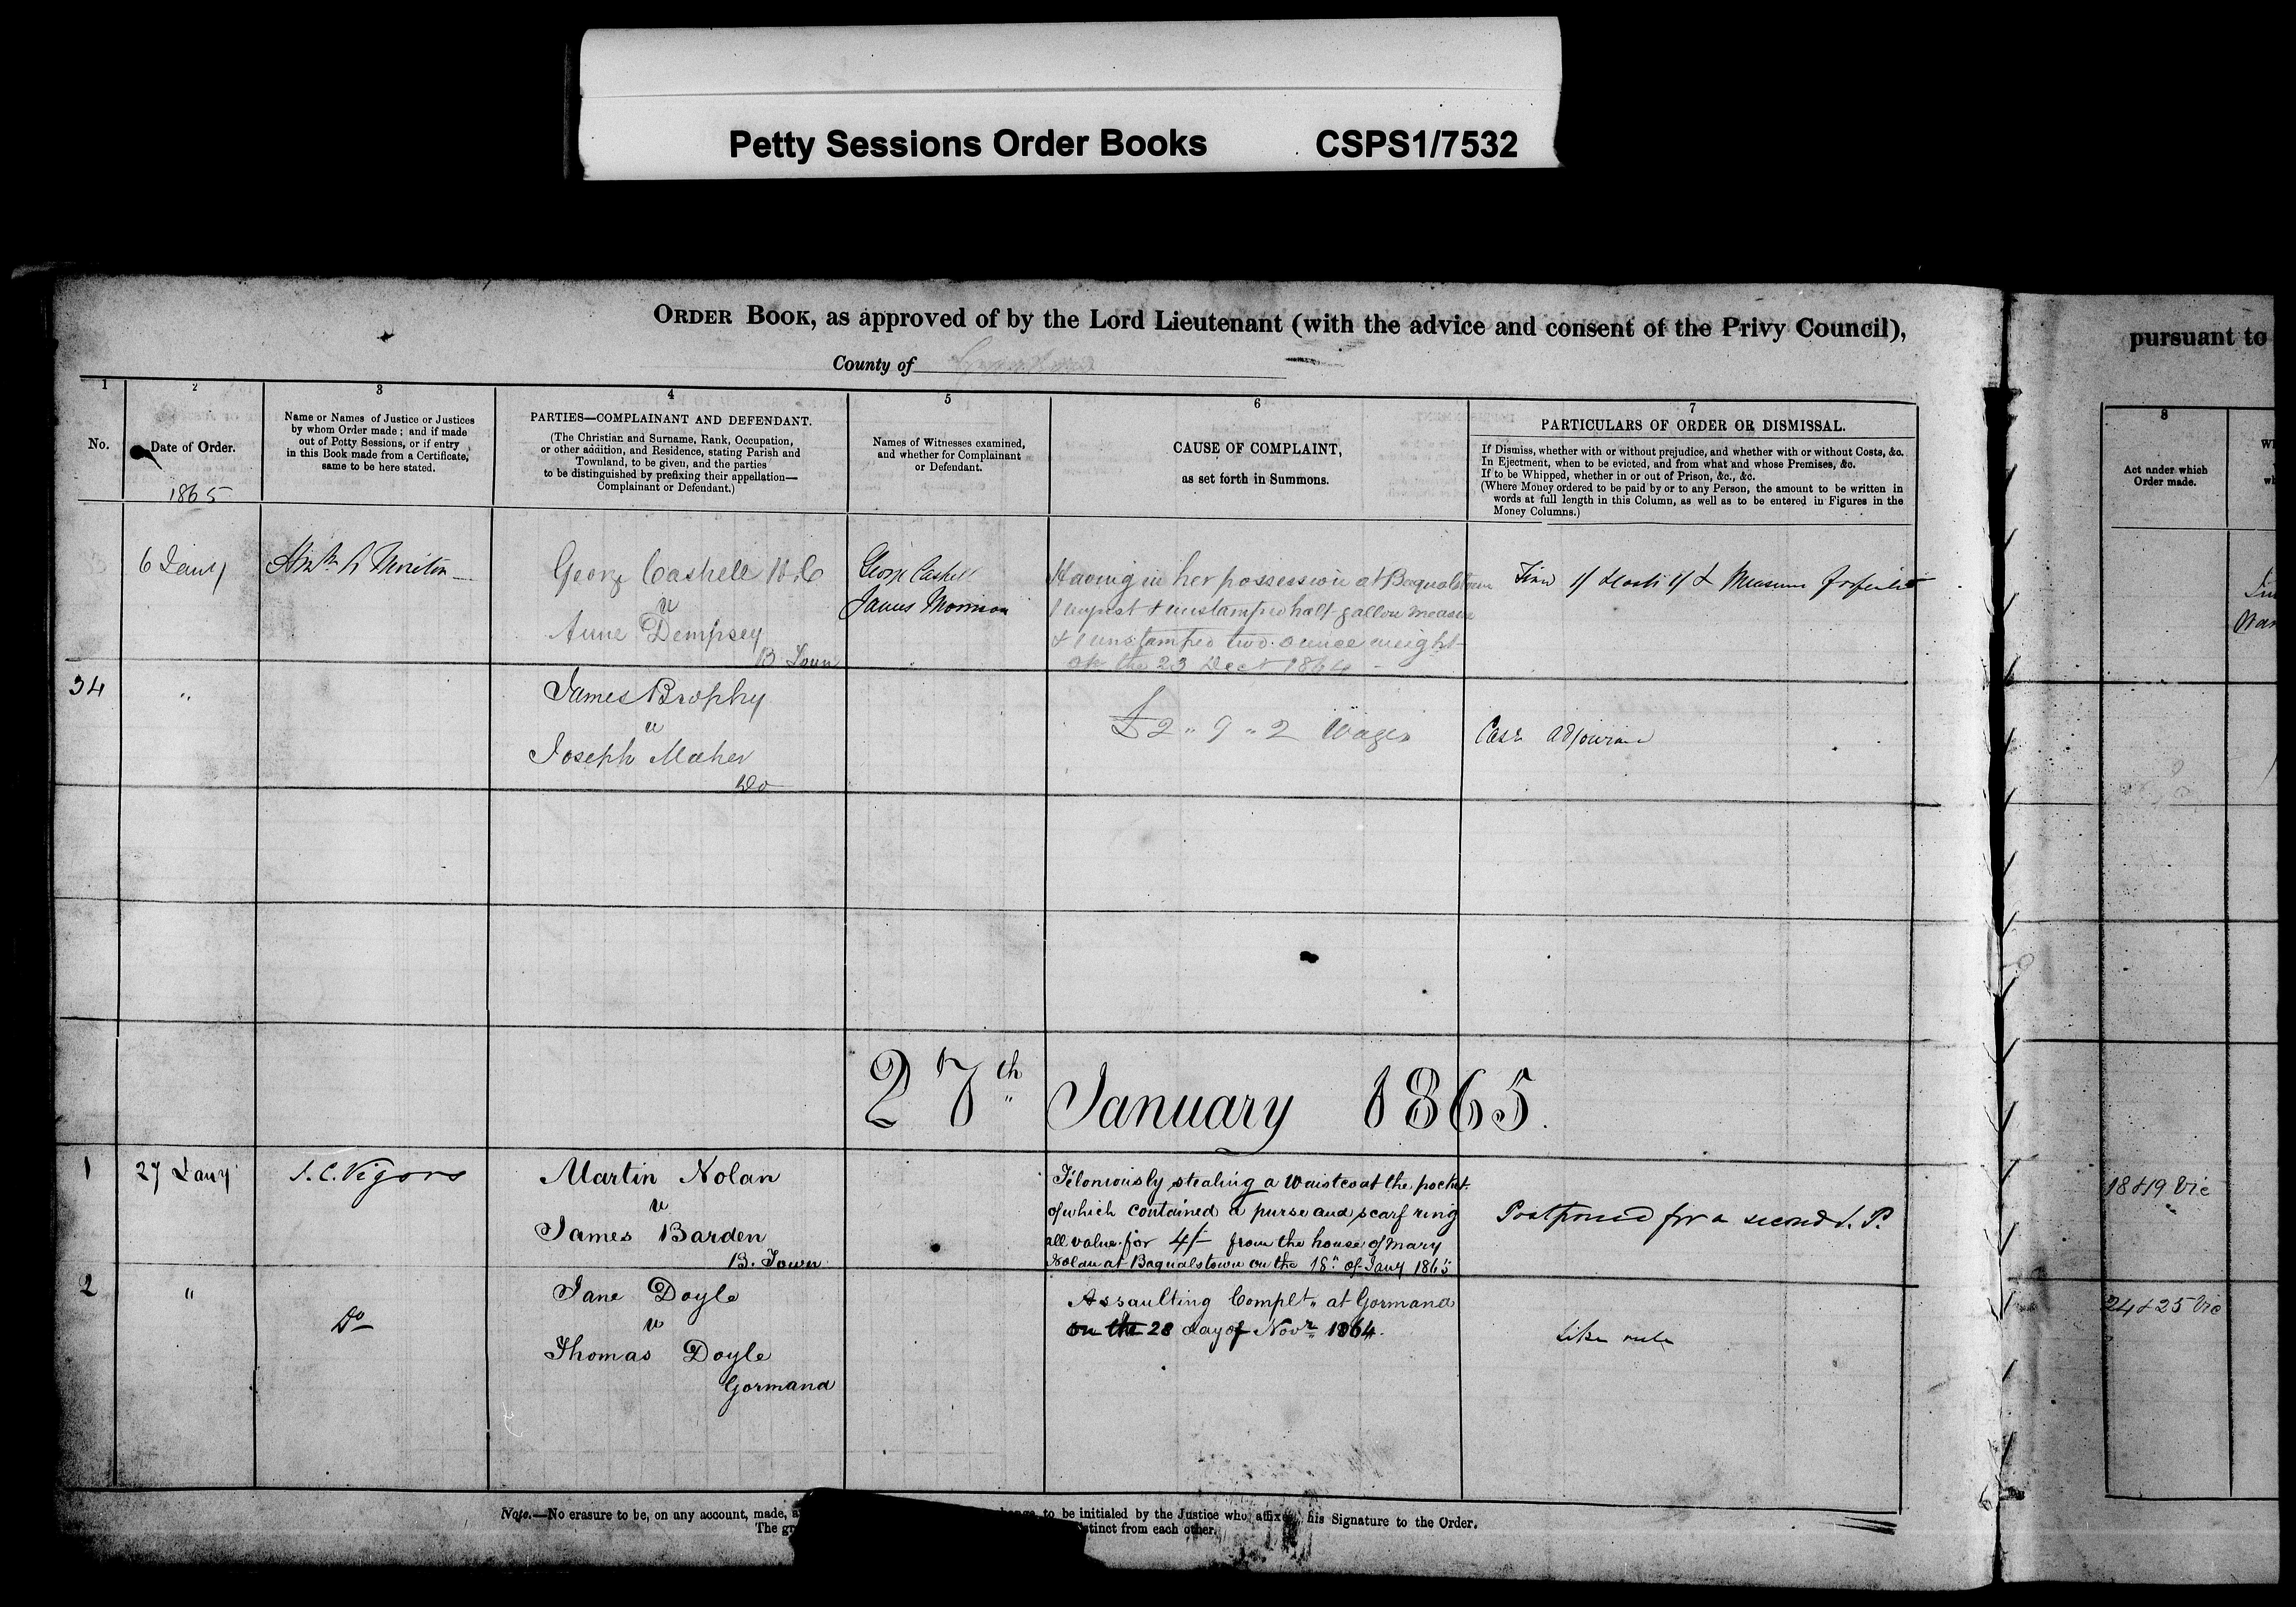 Petty Sessions Order Books CSPS1/7532
ORDER BOOK, as approved of by the Lord Lieutenant (with the advice and consent of the Privy Council),
pursuant to
County of
1 2 3 4 5 6 7 8
No.
Date of Order.
1865
Name or Names of Justice or Justices
by whom Order made; and if made
out of Petty Sessions, or if entry
in this Book made from a Certificate,
same to be here stated.
PARTIES—COMPLAINANT AND DEFENDANT.
(The Christian and Surname, Rank, Occupation,
or other addition, and Residence, stating Parish and
Townland, to be given, and the parties
to be distinguished by prefixing their appellation—
Complainant or Defendant.)
Names of Witnesses examined,
and whether for Complainant
or Defendant.
CAUSE OF COMPLAINT,
as set forth in Summons.
PARTICULARS OF ORDER OR DISMISSAL.
If Dismiss, whether with or without prejudice, and whether with or without Costs, &c.
In Ejectment, when to be evicted, and from what and whose Premises, &c.
If to be Whipped, whether in or out of Prison, &c., &c.
(Where Money ordered to be paid by or to any Person, the amount to be written in
words at full length in this Column, as well as to be entered in Figures in the
Money Columns.)
Act under which
Order made.
6 Jany
George Cashell H.C
v
Anne Dempsey
B Town
George Cashell
James Morrison
Having in her possession at Bagnalstown
1 unjust & unstamped half gallon measure
& 1 unstamped two ounce weight
on the 23 Decr 1864
Fine 1/ & Costs 1/ & Measure forfeited
34
"
James Brophy
v
Joseph Maher
Do
£2 " 9 " 2 Wages
Case adjourned
27th January 1865.
1
27 Jany
J. C. Vigors
Martin Nolan
v
James Barden
B. Town
Feloniously stealing a waistcoat the pocket
of which contained a purse and scarf ring
all value for 4/- from the house of Mary
Nolan at Bagnalstown on the 18th of Jany 1865
Postponed for a second J. P.
18 & 19 Vic
2
"
Do
Jane Doyle
v
Thomas Doyle
Gormana
Assaulting Complt. at Gormana
on the 28 day of Novr 1864.
Like rule
24 & 25 Vic
Note.—No erasure to be, on any account, made,
to be initialed by the Justice who affixes his Signature to the Order.
The
distinct from each other.